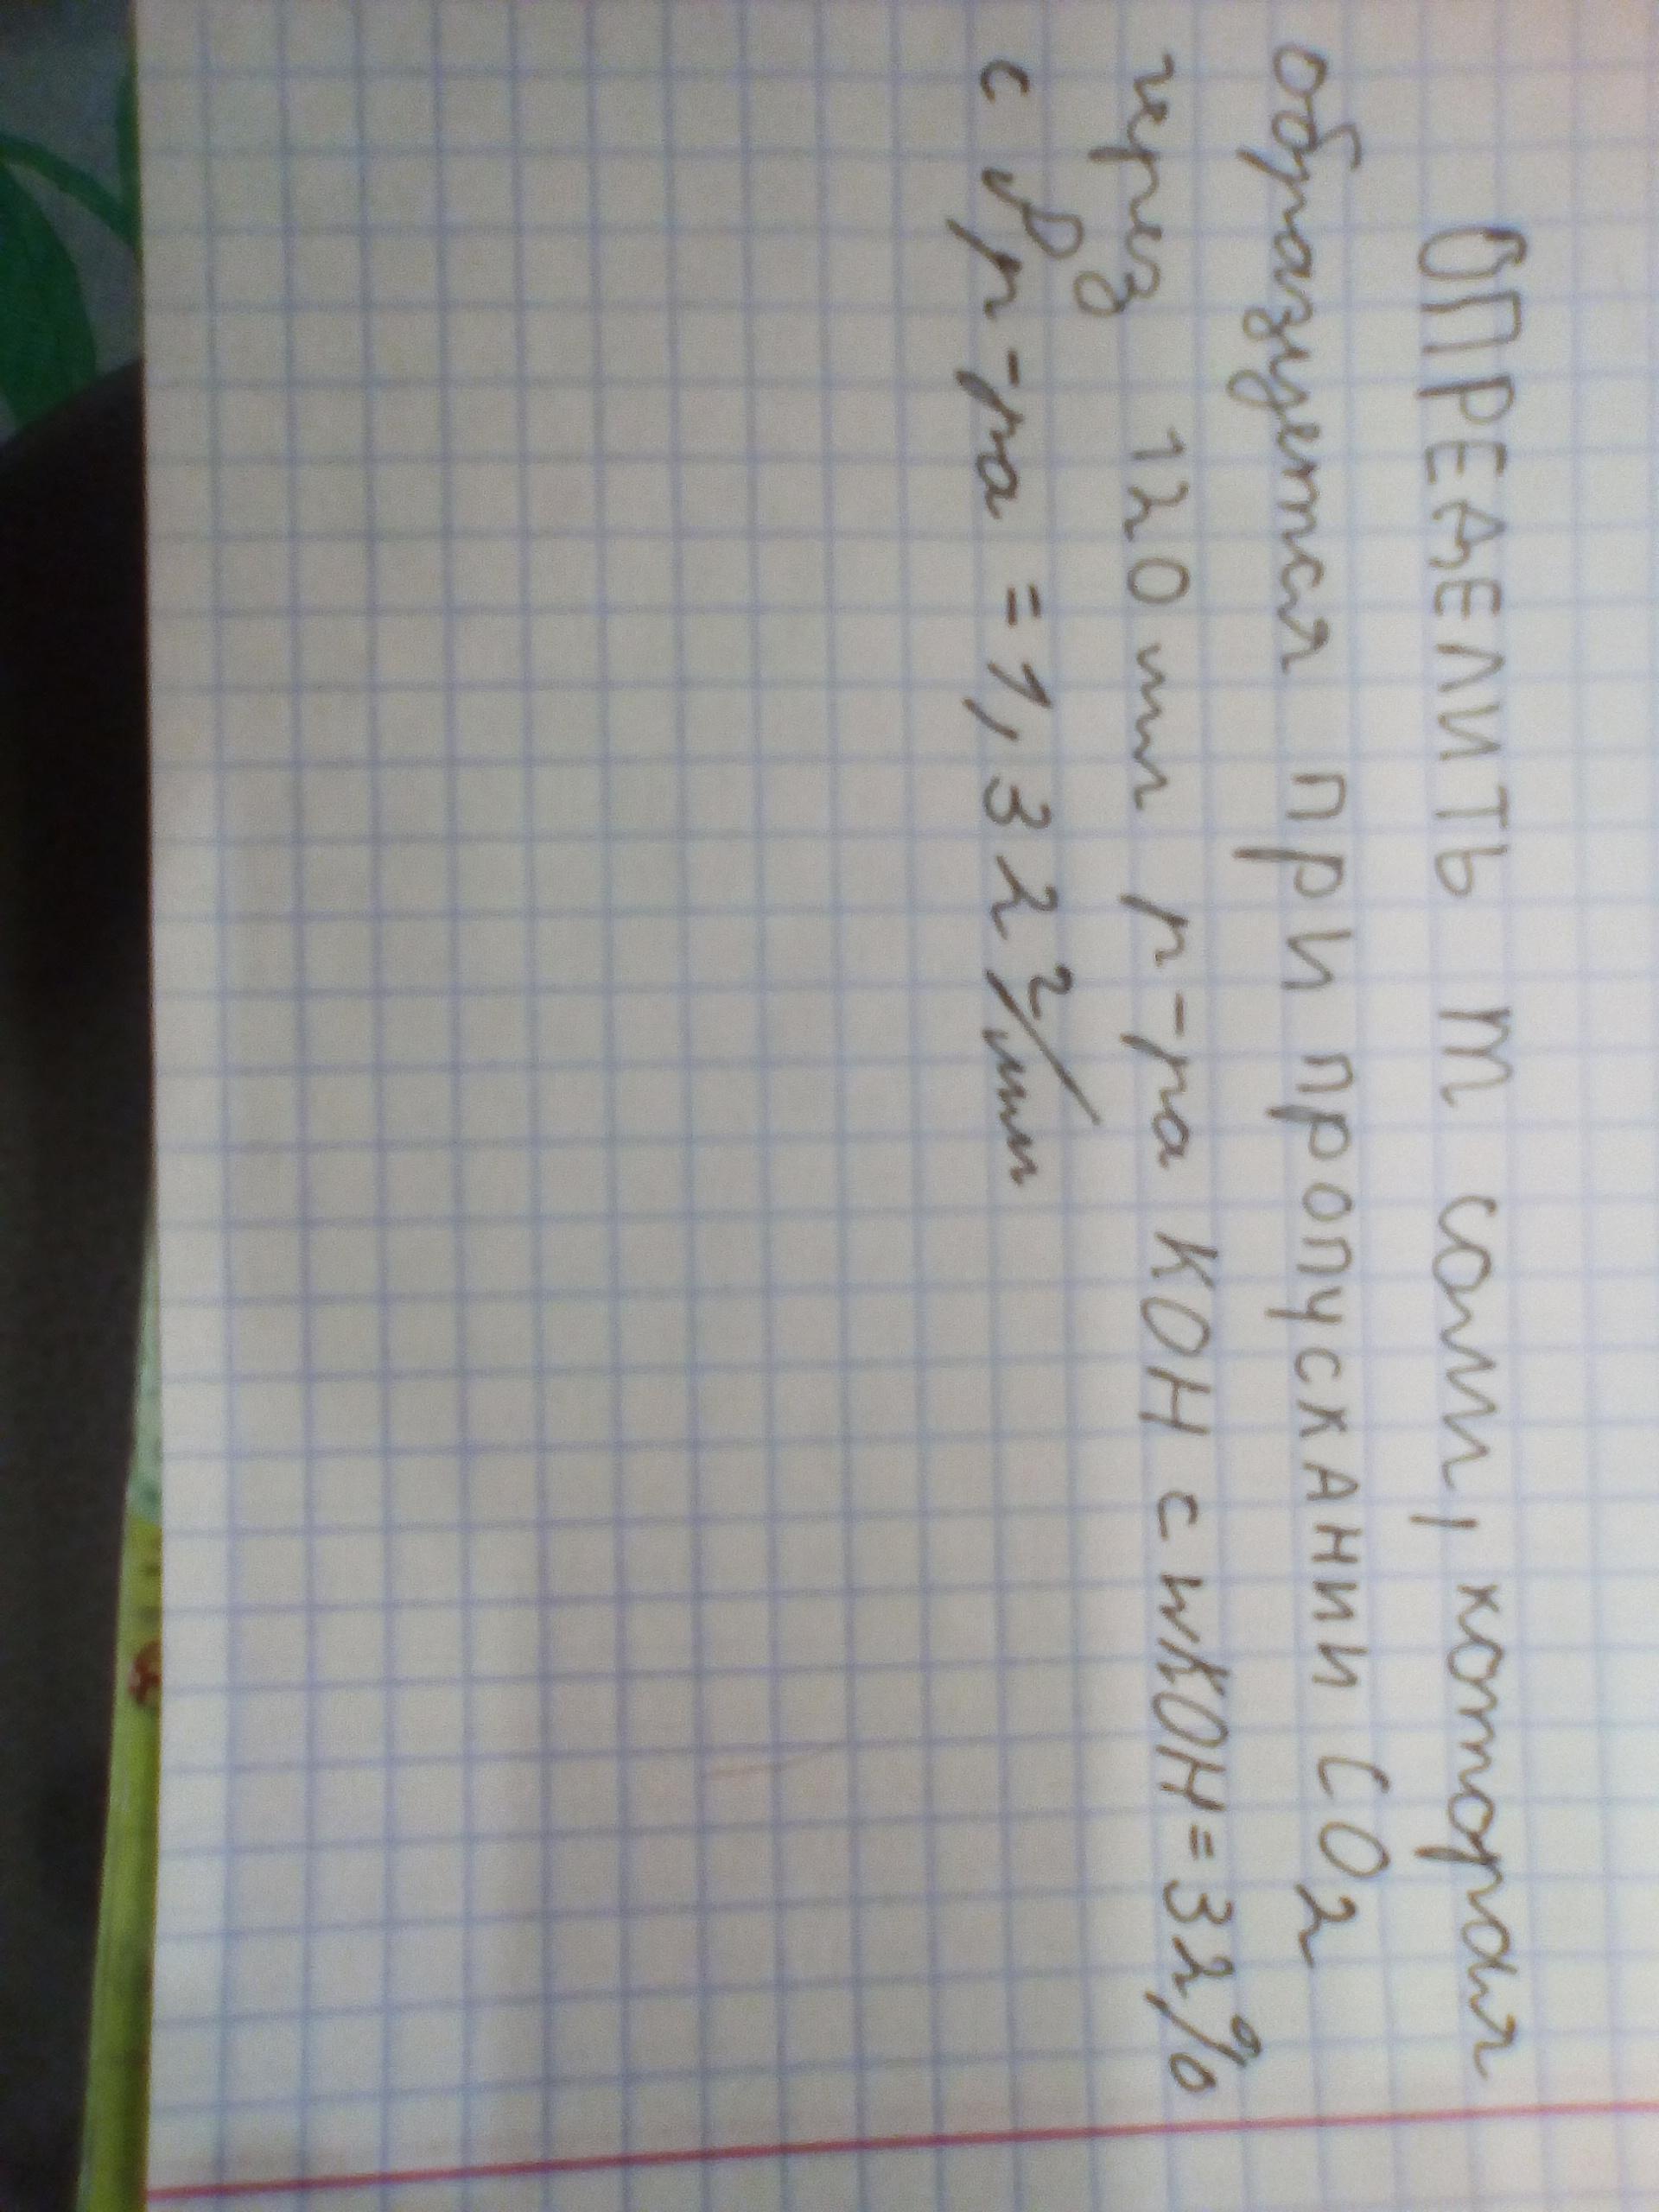 ОПРЕДЕЛИТЬ m соли, которая
образуется при пропускании CO2
через 120 мл р-ра KOH с wKOH=32%
с ρ р-ра = 1,32 г/мл